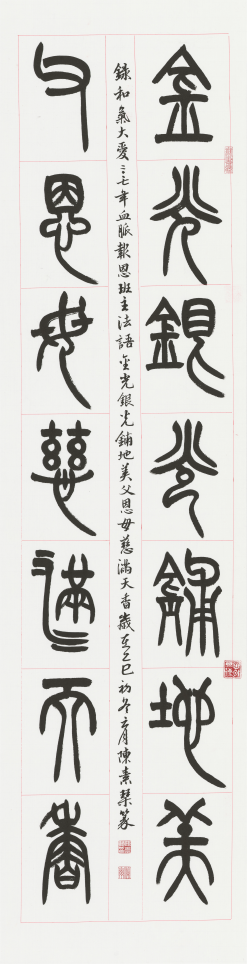 金光銀光鋪地美
父恩母慈滿天香
錄和氣大愛三三七年血脈報恩班主法語金光銀光鋪地美父恩母慈滿天香歲在乙巳初冬之月陳素琴篆